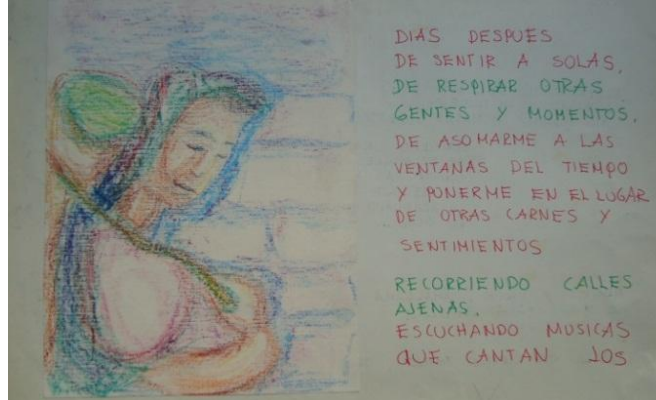 DIAS DESPUES
DE SENTIR A SOLAS,
DE RESPIRAR OTRAS
GENTES Y MOMENTOS,
DE ASOMARME A LAS
VENTANAS DEL TIEMPO
Y PONERME EN EL LUGAR
DE OTRAS CARNES Y
SENTIMIENTOS
RECORRIENDO CALLES
AJENAS,
ESCUCHANDO MUSICAS
QUE CANTAN LOS